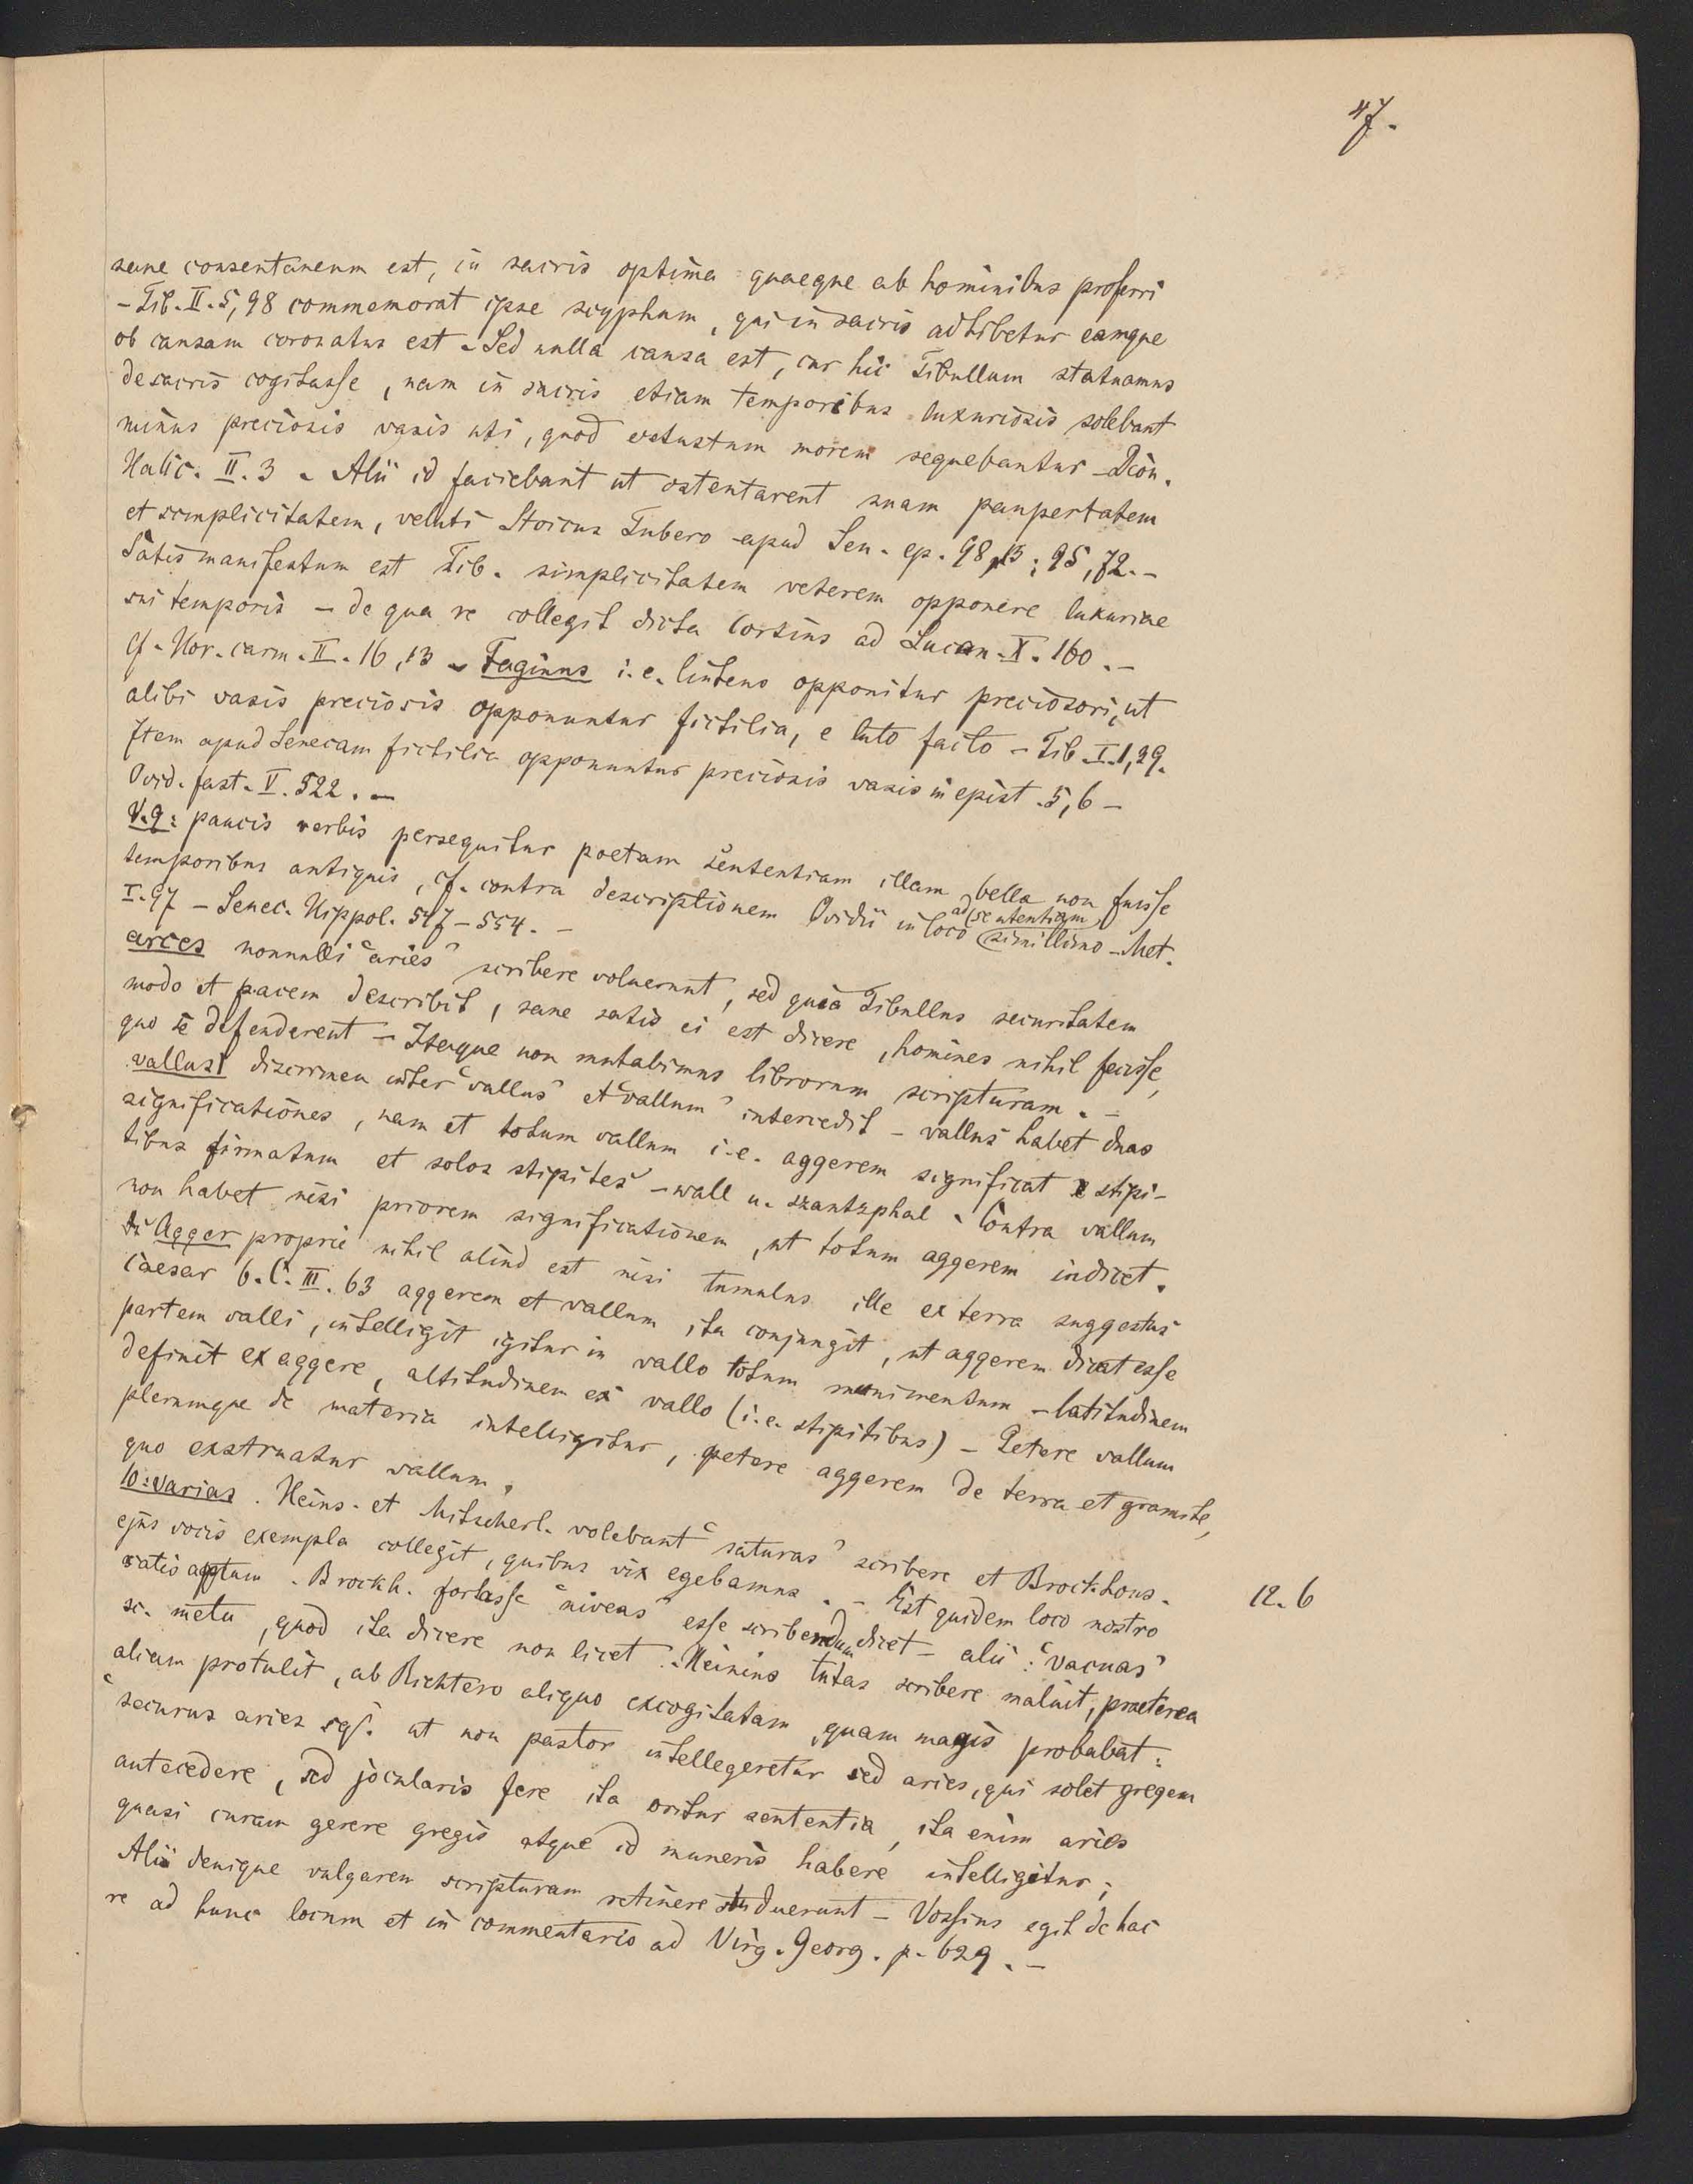 47.
sane consentaneum est, in sacris optima quaeque ab hominibus proferri
- Tib. II. 5, 98 commemorat ipse scyphum, qui in sacris adhibetur eamque
ob causam coronatus est. Sed nulla causa est, cur hic Tibullum statuamus
de sacris cogitasse, nam in sacris etiam temporibus luxuriosis solebant
minus preciosis vasis uti, quod vetustum morem sequebantur - Dion.
Halic. II. 3 - Alii id faciebant ut ostentarent suam paupertatem
et simplicitatem, veluti Stoicus Tubero apud Sen. ep. 98, 13; 95, 72. -
Satis manifestum est Tib. simplicitatem veterem opponere luxuriae
sui temporis - de qua re collegit dicta Cortius ad Lucan. X. 160. -
Cf. Hor. carm. II. 16, 13 - Faginus i. e. opponitur preciosori, ut
alibi vasis preciosis opponuntur fictilia, e luto facto - Tib. I. 1, 29.
Item apud Senecam fictilia opponuntur preciosis vasis in epist. 5, 6 -
Ovid. fast. V. 522. -
V. 9: paucis verbis persequitur poetam sententiam illam, bella non fuisse
temporibus antiquis, cf. contra descriptionem Ovidii in loco ad sententiam simillimo - Met.
I. 97 - Senec. Hippol. 547 - 554. -
arces nonnulli "aries" scribere voluerunt, sed quia Tibullus securitatem
modo et pacem describit, sane satis ei est dicere, homines nihil fecisse,
quo se defenderent - Itaque non mutabimus librorum scripturam. -
vallus] discrimen inter "vallus" et "vallum" intercedit - vallus habet duas
significationes, nam et totum vallum i. e. aggerem significat stipi-
tibus firmatum et solos stipites - wall u. szantzphal. Contra vallum
non habet nisi priorem significationem, ut totum aggerem indicet.
Agger proprie nihil aliud est nisi tumulus ille ex terra suggestus
Caesar b. C. III. 63 aggerem et vallum ita conjungit, ut aggerem dicat esse
partem valli, intelligit igitur in vallo totum munimentum - latitudinem
definit ex aggere, altitudinem ex vallo (i. e. stipitibus) - Petere vallum
plerumque de materia intelligitur, petere aggerem de terra et gramite,
quo exstruatur vallum.
10: varias. Heins. et Mitscherl. volebant "saturas" scribere et Brockhous.
ejus vocis exempla collegit, quibus vix egebamus. - Est quidem loco nostro
satis aptum. Brockh. fortasse "niveas" esse scribendum dicet - alii: "vacuas"
12. 6
sc. metu, quod ita dicere non licet. - Heinius tutas scribere maluit, praeterea
aliam protulit, ab Richtero aliquo excogitatam, quam magis probabat:
"securus aries sqs. ut non pastor intellegeretur sed aries, qui solet gregem
antecedere, sed jocularis fere ita oritur sententia, ita enim aries
quasi curam gerere gregis atque id muneris habere intelligitur;
Alii denique vulgarem scripturam retinere studuerunt - Vossius egit de hac
re ad hunc locum et in commentario ad Virg. Georg. p. 629. -